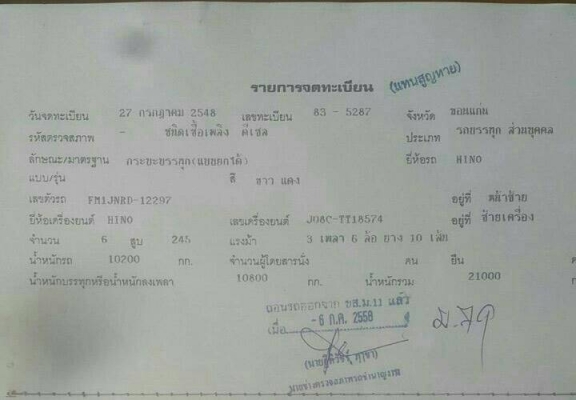 รายการจดทะเบียน (แทนสูญหาย)
วันจดทะเบียน 27 กรกฎาคม 2548 เลขทะเบียน 83 - 5287 จังหวัด ขอนแก่น
รหัสตรวจสภาพ - ชนิดเชื้อเพลิง ดีเซล ประเภท รถบรรทุก ส่วนบุคคล
ลักษณะ/มาตรฐาน กระบะบรรทุก(แบบยกได้) ยี่ห้อรถ HINO
แบบ/รุ่น สี ขาว แดง
เลขตัวรถ FM1JNRD-12297 อยู่ที่ หล้าซ้าย
ยี่ห้อเครื่องยนต์ HINO เลขเครื่องยนต์ J08C-TT18574 อยู่ที่ ซ้ายเครื่อง
จำนวน 6 สูบ 245 แรงม้า 3 เพลา 6 ล้อ ยาง 10 เส้น
น้ำหนักรถ 10200 กก. จำนวนผู้โดยสารนั่ง คน ยืน
น้ำหนักบรรทุกหรือน้ำหนักลงเพลา 10800 กก. น้ำหนักรวม 21000
ถอนรถออกจาก ขส.ม.11 แล้ว
เมื่อ -6 ก.ค. 2559